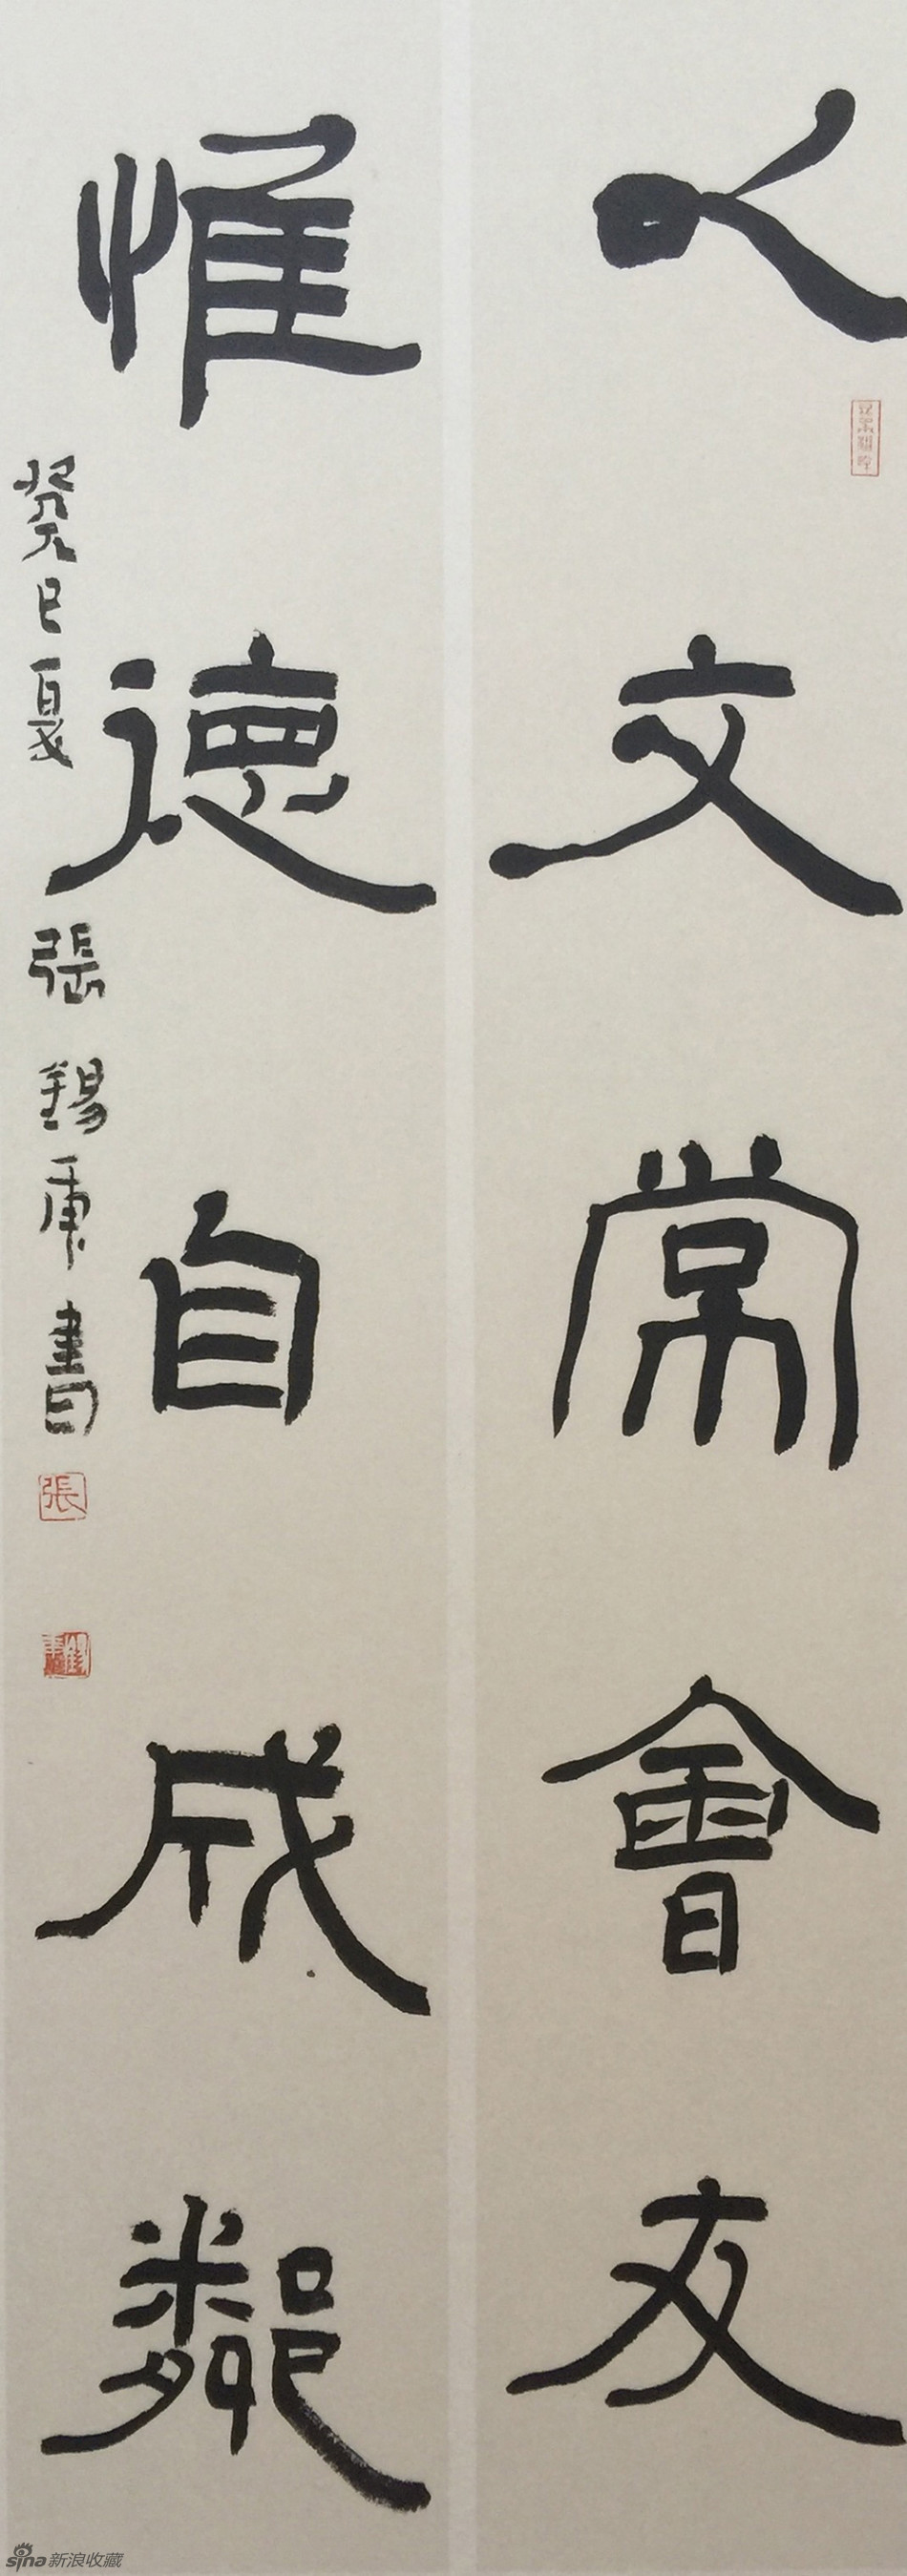 以文常會友
惟德自成鄰
癸巳夏 張錫庚書
張
sina新浪收藏